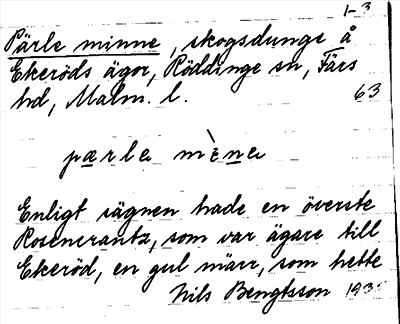 1-3
Pärle minne, skogsdunge å
Ekeröds ägor, Röddinge sn, Färs
hd, Malm. l. 63
pærlə mìnə
Enligt sägnen hade en överste
Rosencrantz, som var ägare till
Ekeröd, en gul märr, som hette
Nils Bengtsson 1935